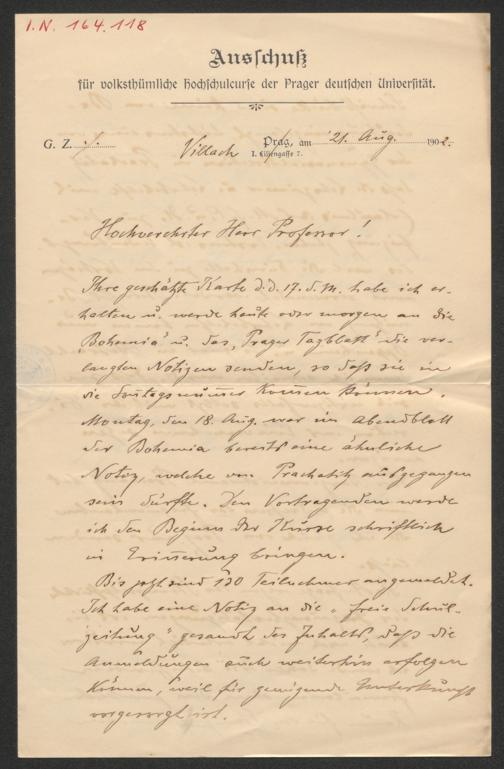 I.N. 164.118
Ausschuß
für volksthümliche Hochschulcurse der Prager deutschen Universität.
G. Z. ./.
Villach Prag, am 21. Aug. 1902.
I. Liliengasse 7.
Hochverehrter Herr Professor!
Ihre geschätzte Karte d.d. 17. d. M. habe ich er-
halten u. werde heute oder morgen an die
„Bohemia" u. das „Prager Tagblatt" die ver-
langten Notizen senden, so daß sie in
die Sontagsnummer kommen können.
Montag, den 18. Aug. war im Abendblatt
der Bohemia bereits eine ähnliche
Notiz, welche von Prachatitz ausgegangen
sein dürfte. Den Vortragenden werde
ich den Beginn der Kurse schriftlich
in Erinnerung bringen.
Bis jetzt sind 130 Teilnehmer angemeldet.
Ich habe eine Notiz an die „freie Schul-
zeitung" gesandt des Inhalts, daß die
Anmeldungen auch weiterhin erfolgen
können, weil für genügende Unterkunft
vorgesorgt ist.